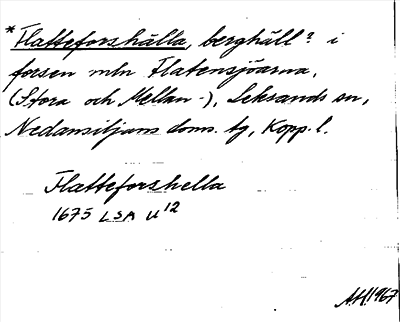 *Flatteforshälla, berghäll? i
forsen mln Flatensjöarna,
(Stora och Mellan-), Leksands sn,
Nedansiljans doms. tg, Kopp. l.
Flatteforshella
1675 LSA U12
AH. 1967